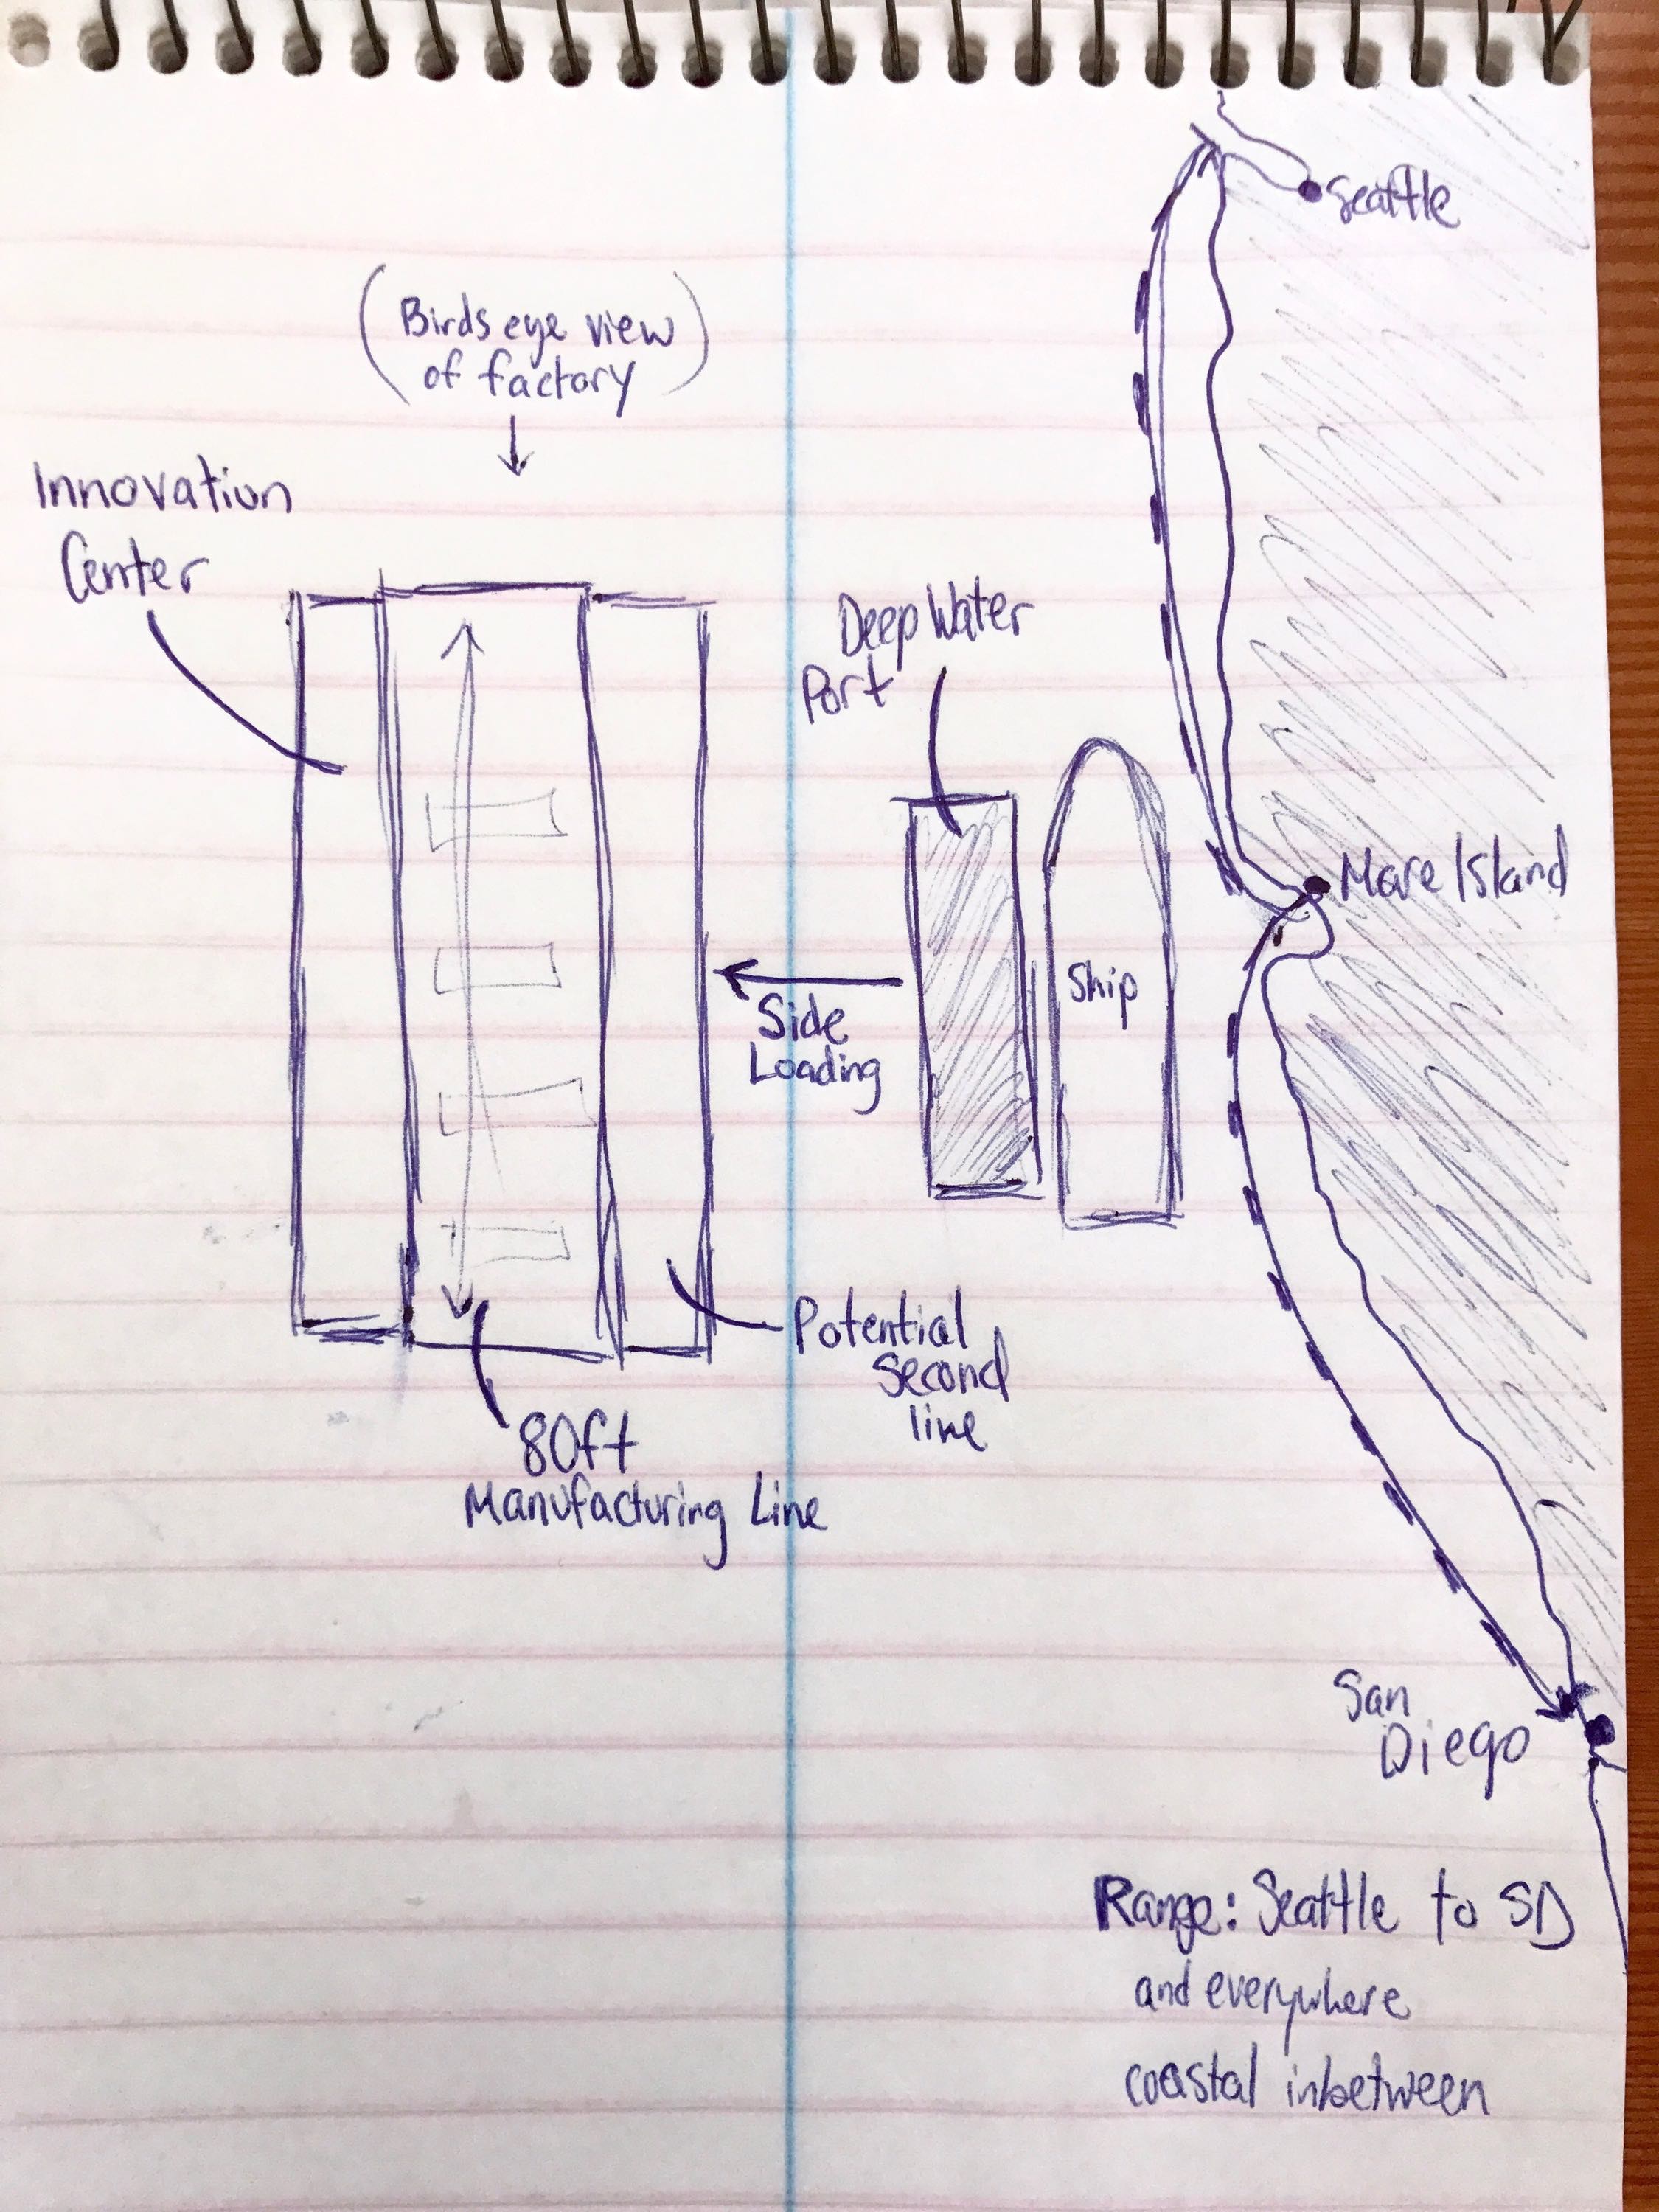 Seattle
(Birds eye view
of factory)
Innovation
Center
Deep Water
Port
Mare Island
Ship
Side
Loading
Potential
second
line
80ft
Manufacturing Line
San
Diego
Range: Seattle to SD
and everywhere
coastal inbetween